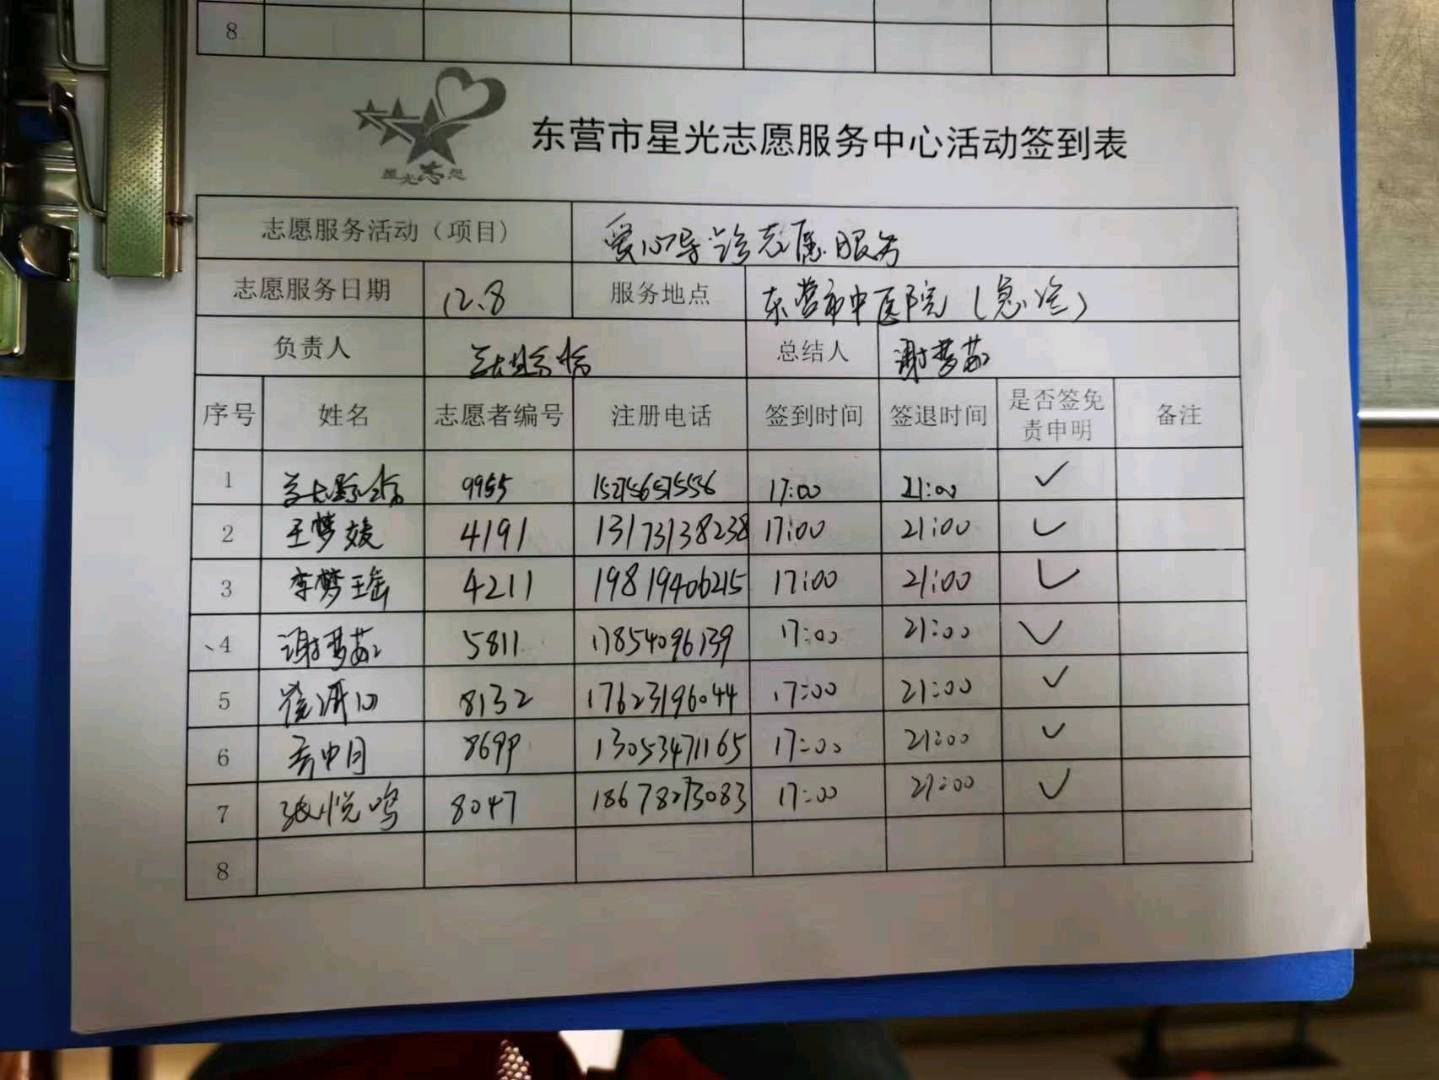 8
星光志愿
东营市星光志愿服务中心活动签到表
志愿服务活动（项目） 爱心导诊志愿服务
志愿服务日期 12.8 服务地点 东营市中医院（急诊）
负责人 总结人 谢梦茹
序号 姓名 志愿者编号 注册电话 签到时间 签退时间 是否签免责申明 备注
1 9955 17:00 21:00 ✓
2 王梦媛 4191 13173138238 17:00 21:00 ✓
3 李梦瑶 4211 19819406215 17:00 21:00 ✓
4 谢梦茹 5811 17854096139 17:00 21:00 ✓
5 8132 17623196044 17:00 21:00 ✓
6 8699 13053471165 17:00 21:00 ✓
7 张悦鸣 8047 18678273083 17:00 21:00 ✓
8